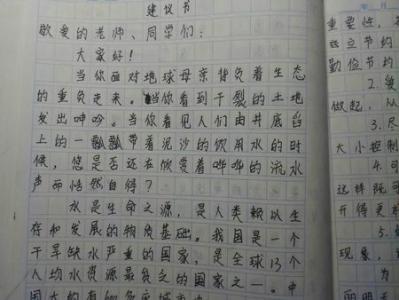 建议书
敬爱的老师、同学们:
大家好!
当你面对地球母亲背负着生态
的重负走来。当你看到干裂的土地
发出呻吟。当你看见人们由井底舀
上的一瓢瓢带着泥沙的饮用水的时
候,您是否还在欣赏着哗哗的流水
声而恬然自得?
水是生命之源,是人类赖以生
存和发展的物质基础。我国是一个
干旱缺水严重的国家,是全球13个
人均水资源最贫乏的国家之一。中
重要性,
应立节约
勤俭节约
2.
做起,从
3.尽
大小控制
4.可
这样既可
开得更
5.
现象,
为